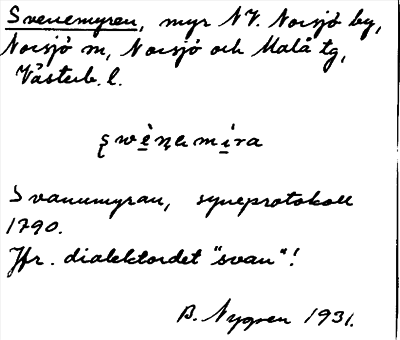 Svenemyren, myr NV. Norsjö by,
Norsjö sn, Norsjö och Malå tg,
Västerb. l.
Svanumyran, syneprotokoll
1790.
Jfr. dialektordet "svan"!
B. Nygren 1931.